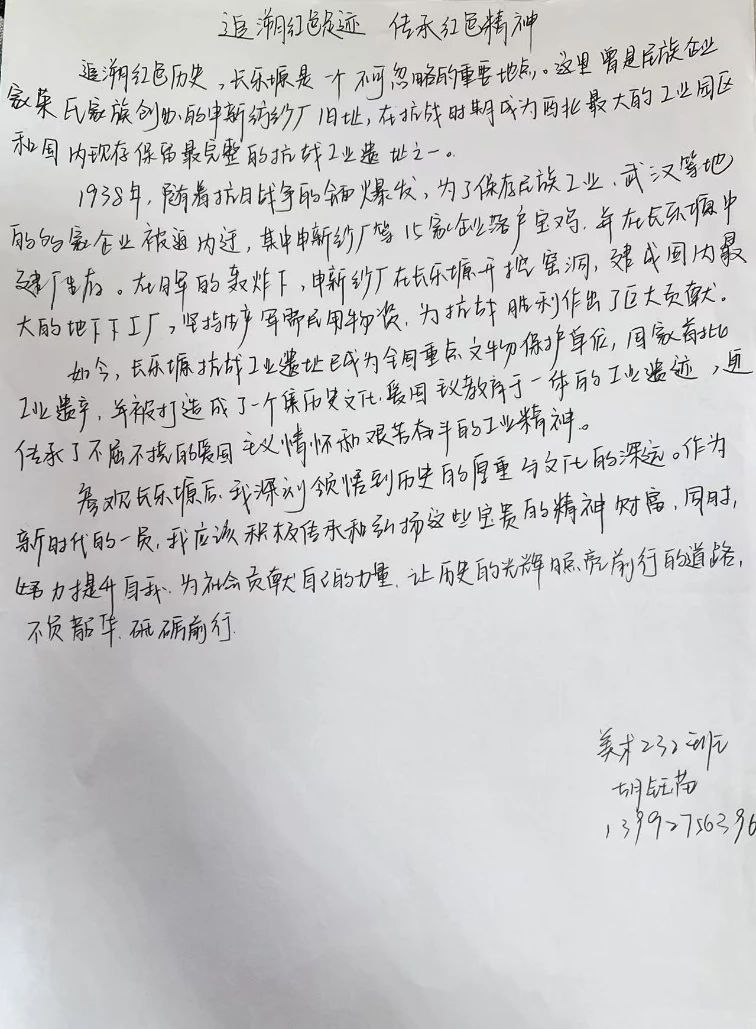 追溯红色足迹 传承红色精神
追溯红色历史,长乐塬是一个不可忽略的重要地点。这里曾是民族企业
家荣氏家族创办的申新纺纱厂旧址,在抗战时期成为西北最大的工业园区
和国内现存保留最完整的抗战工业遗址之一。
1938年,随着抗日战争的全面爆发,为了保存民族工业,武汉等地
的家企业被迫内迁,其中申新纱厂等15家企业落户宝鸡,并在长乐塬中
建厂生存。在日军的轰炸下,申新纱厂在长乐塬开挖窑洞,建成国内最
大的地下工厂,坚持生产军需民用物资,为抗战胜利作出了巨大贡献。
如今,长乐塬抗战工业遗址已成为全国重点文物保护单位,国家
工业遗产,并被打造成了一个集历史文化,爱国主义教育于一体的工业遗迹,
传承了不屈不挠的爱国主义情怀和艰苦奋斗的工业精神。
参观长乐塬后,我深刻领悟到历史的厚重与文化的深远。作为
新时代的一员,我应该积极传承和弘扬这些宝贵的精神财富,同时,
努力提升自我,为社会贡献自己的力量,让历史的光辉照亮前行的道路,
不负韶华,砥砺前行.
美术232班
胡钰
1399275639